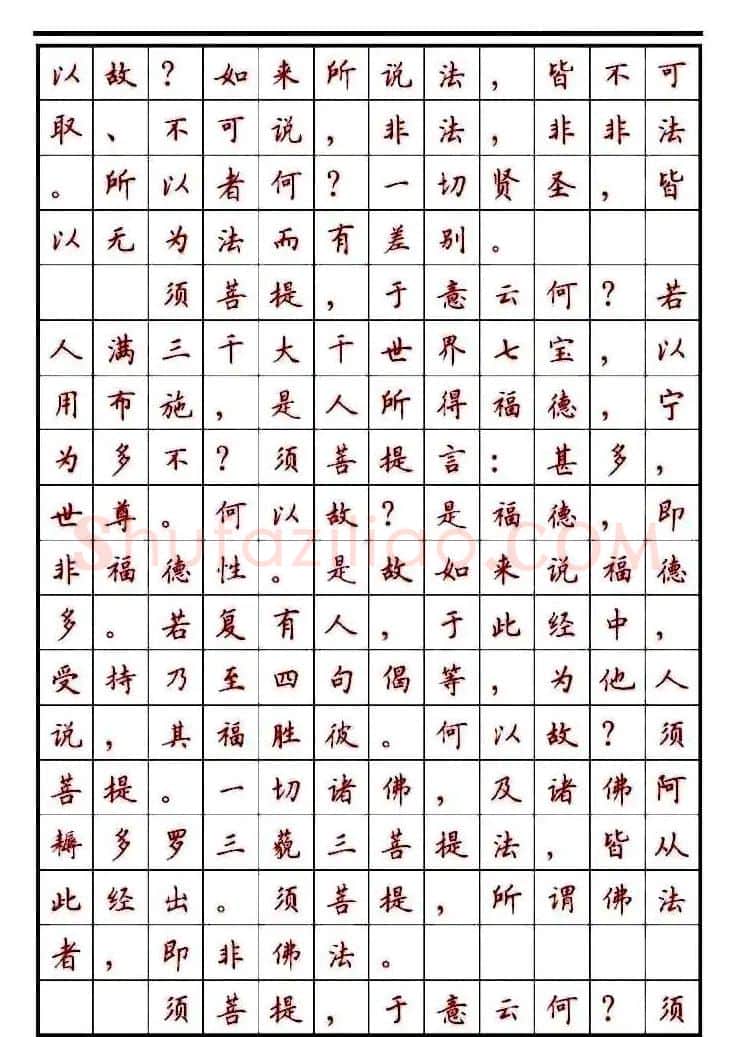 以故？如来所说法，皆不可
取、不可说，非法，非非法
。所以者何？一切贤圣，皆
以无为法而有差别。
须菩提，于意云何？若
人满三千大千世界七宝，以
用布施，是人所得福德，宁
为多不？须菩提言：甚多，
世尊。何以故？是福德，即
非福德性。是故如来说福德
多。若复有人，于此经中，
受持乃至四句偈等，为他人
说，其福胜彼。何以故？须
菩提。一切诸佛，及诸佛阿
耨多罗三藐三菩提法，皆从
此经出。须菩提，所谓佛法
者，即非佛法。
须菩提，于意云何？须
Shufaziliao.COM